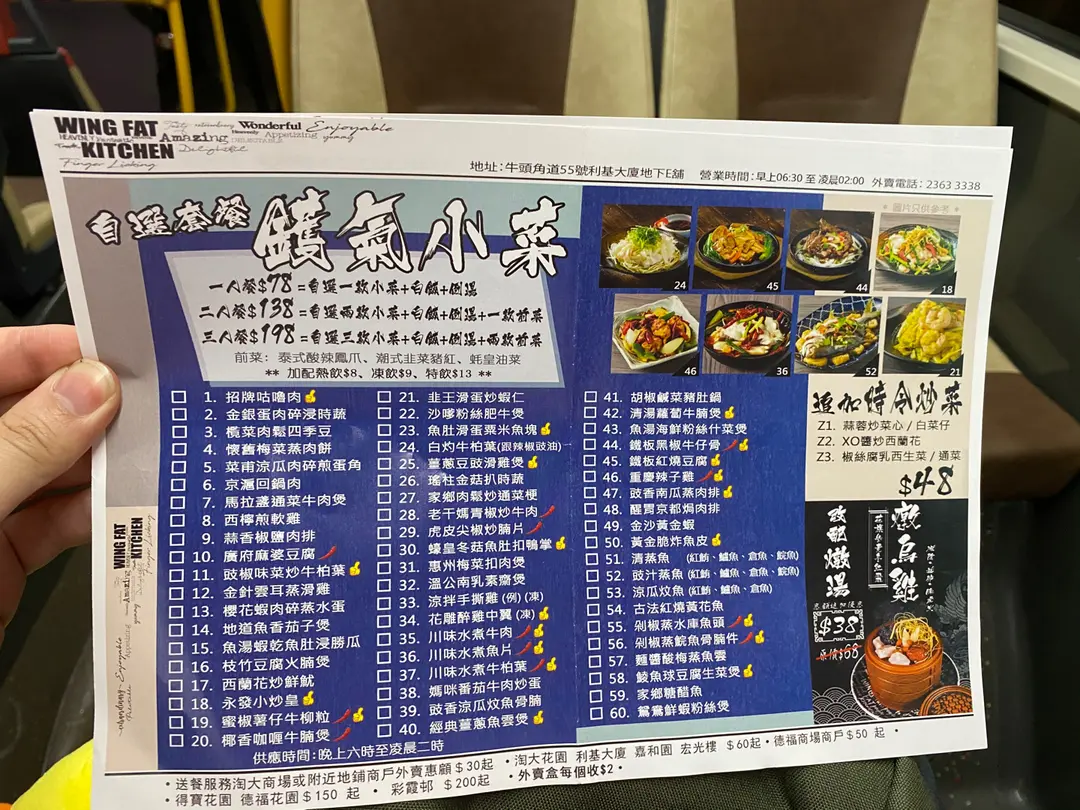 WING FAT
KITCHEN
Amazing
Wonderful
Enjoyable
Heavenly
Appetizing
yummy
Delightful
Finger Licking
地址:牛頭角道55號利基大廈地下E舖 營業時間:早上06:30 至 凌晨02:00 外賣電話: 2363 3338
自選套餐 鑊氣小菜
一人餐$78 =自選一款小菜+白飯+例湯
二人餐$138 =自選兩款小菜+白飯+例湯+一款前菜
三人餐$198 =自選三款小菜+白飯+例湯+兩款前菜
前菜: 泰式酸辣鳳爪、潮式韭菜豬紅、蚝皇油菜
** 加配熱飲$8、凍飲$9、特飲$13 **
* 圖片只供參考 *
24
45
44
18
46
36
52
21
1. 招牌咕嚕肉
2. 金銀蛋肉碎浸時蔬
3. 欖菜肉鬆四季豆
4. 懷舊梅菜蒸肉餅
5. 菜甫涼瓜肉碎煎蛋角
6. 京滬回鍋肉
7. 馬拉盞通菜牛肉煲
8. 西檸煎軟雞
9. 蒜香椒鹽肉排
10. 廣府麻婆豆腐
11. 豉椒味菜炒牛柏葉
12. 金針雲耳蒸滑雞
13. 櫻花蝦肉碎蒸水蛋
14. 地道魚香茄子煲
15. 魚湯蝦乾魚肚浸勝瓜
16. 枝竹豆腐火腩煲
17. 西蘭花炒鮮魷
18. 永發小炒皇
19. 蜜椒薯仔牛柳粒
20. 椰香咖喱牛腩煲
21. 韭王滑蛋炒蝦仁
22. 沙嗲粉絲肥牛煲
23. 魚肚滑蛋粟米魚塊
24. 白灼牛柏葉(跟辣椒豉油)
25. 薑蔥豆豉滑雞煲
26. 瑤柱金菇扒時蔬
27. 家鄉肉鬆炒通菜梗
28. 老干媽青椒炒牛肉
29. 虎皮尖椒炒腩片
30. 蠔皇冬菇魚肚扣鴨掌
31. 惠州梅菜扣肉煲
32. 溫公南乳素齋煲
33. 涼拌手撕雞 (例) (凍)
34. 花雕醉雞中翼 (凍)
35. 川味水煮牛肉
36. 川味水煮魚片
37. 川味水煮牛柏葉
38. 媽咪番茄牛肉炒蛋
39. 豉香涼瓜炆魚骨腩
40. 經典薑蔥魚雲煲
41. 胡椒鹹菜豬肚鍋
42. 清湯蘿蔔牛腩煲
43. 魚湯海鮮粉絲什菜煲
44. 鐵板黑椒牛仔骨
45. 鐵板紅燒豆腐
46. 重慶辣子雞
47. 豉香南瓜蒸肉排
48. 醒胃京都焗肉排
49. 金沙黃金蝦
50. 黃金脆炸魚皮
51. 清蒸魚 (紅鮋、鱸魚、倉魚、鯇魚)
52. 豉汁蒸魚 (紅鮋、鱸魚、倉魚、鯇魚)
53. 涼瓜炆魚 (紅鮋、鱸魚、倉魚)
54. 古法紅燒黃花魚
55. 剁椒蒸水庫魚頭
56. 剁椒蒸鯇魚骨腩件
57. 麵醬酸梅蒸魚雲
58. 鯪魚球豆腐生菜煲
59. 家鄉糖醋魚
60. 鴛鴦鮮蝦粉絲煲
供應時間:晚上六時至凌晨二時
追加時令炒菜
Z1. 蒜蓉炒菜心 / 白菜仔
Z2. XO醬炒西蘭花
Z3. 椒絲腐乳西生菜 / 通菜
$48
改配燉湯
燉烏雞
$38
原價$68
WING FAT
KITCHEN
・送餐服務淘大商場或附近地鋪商戶外賣惠顧 $30起 ・淘大花園 利基大廈 嘉和園 宏光樓 $60起・德福商場商戶$50 起 ・
・得寶花園 德福花園$150 起 ・ 彩霞邨 $200起 ・外賣盒每個收$2・